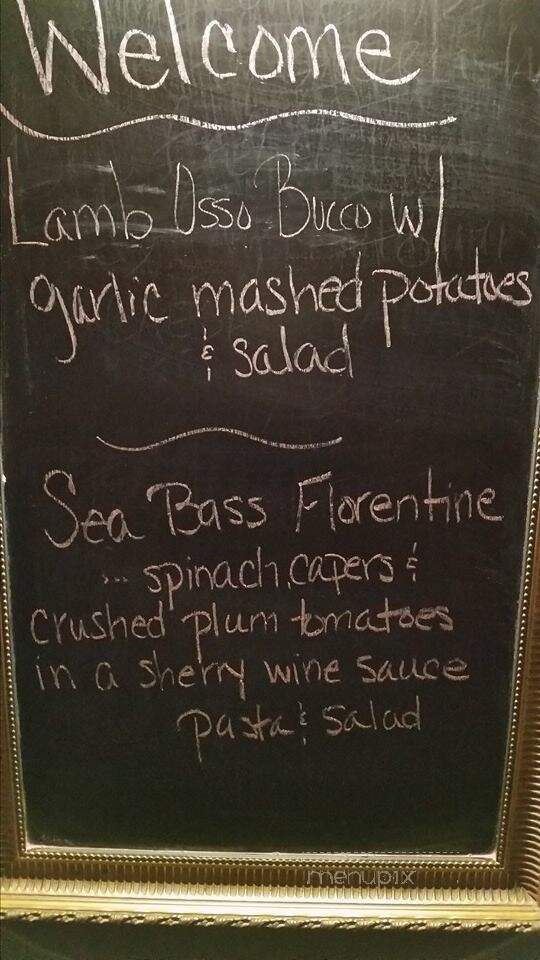 Welcome
Lamb Osso Bucco w/
garlic mashed potatoes
& salad
Sea Bass Florentine
... spinach, capers &
crushed plum tomatoes
in a sherry wine sauce
pasta & salad
menupix